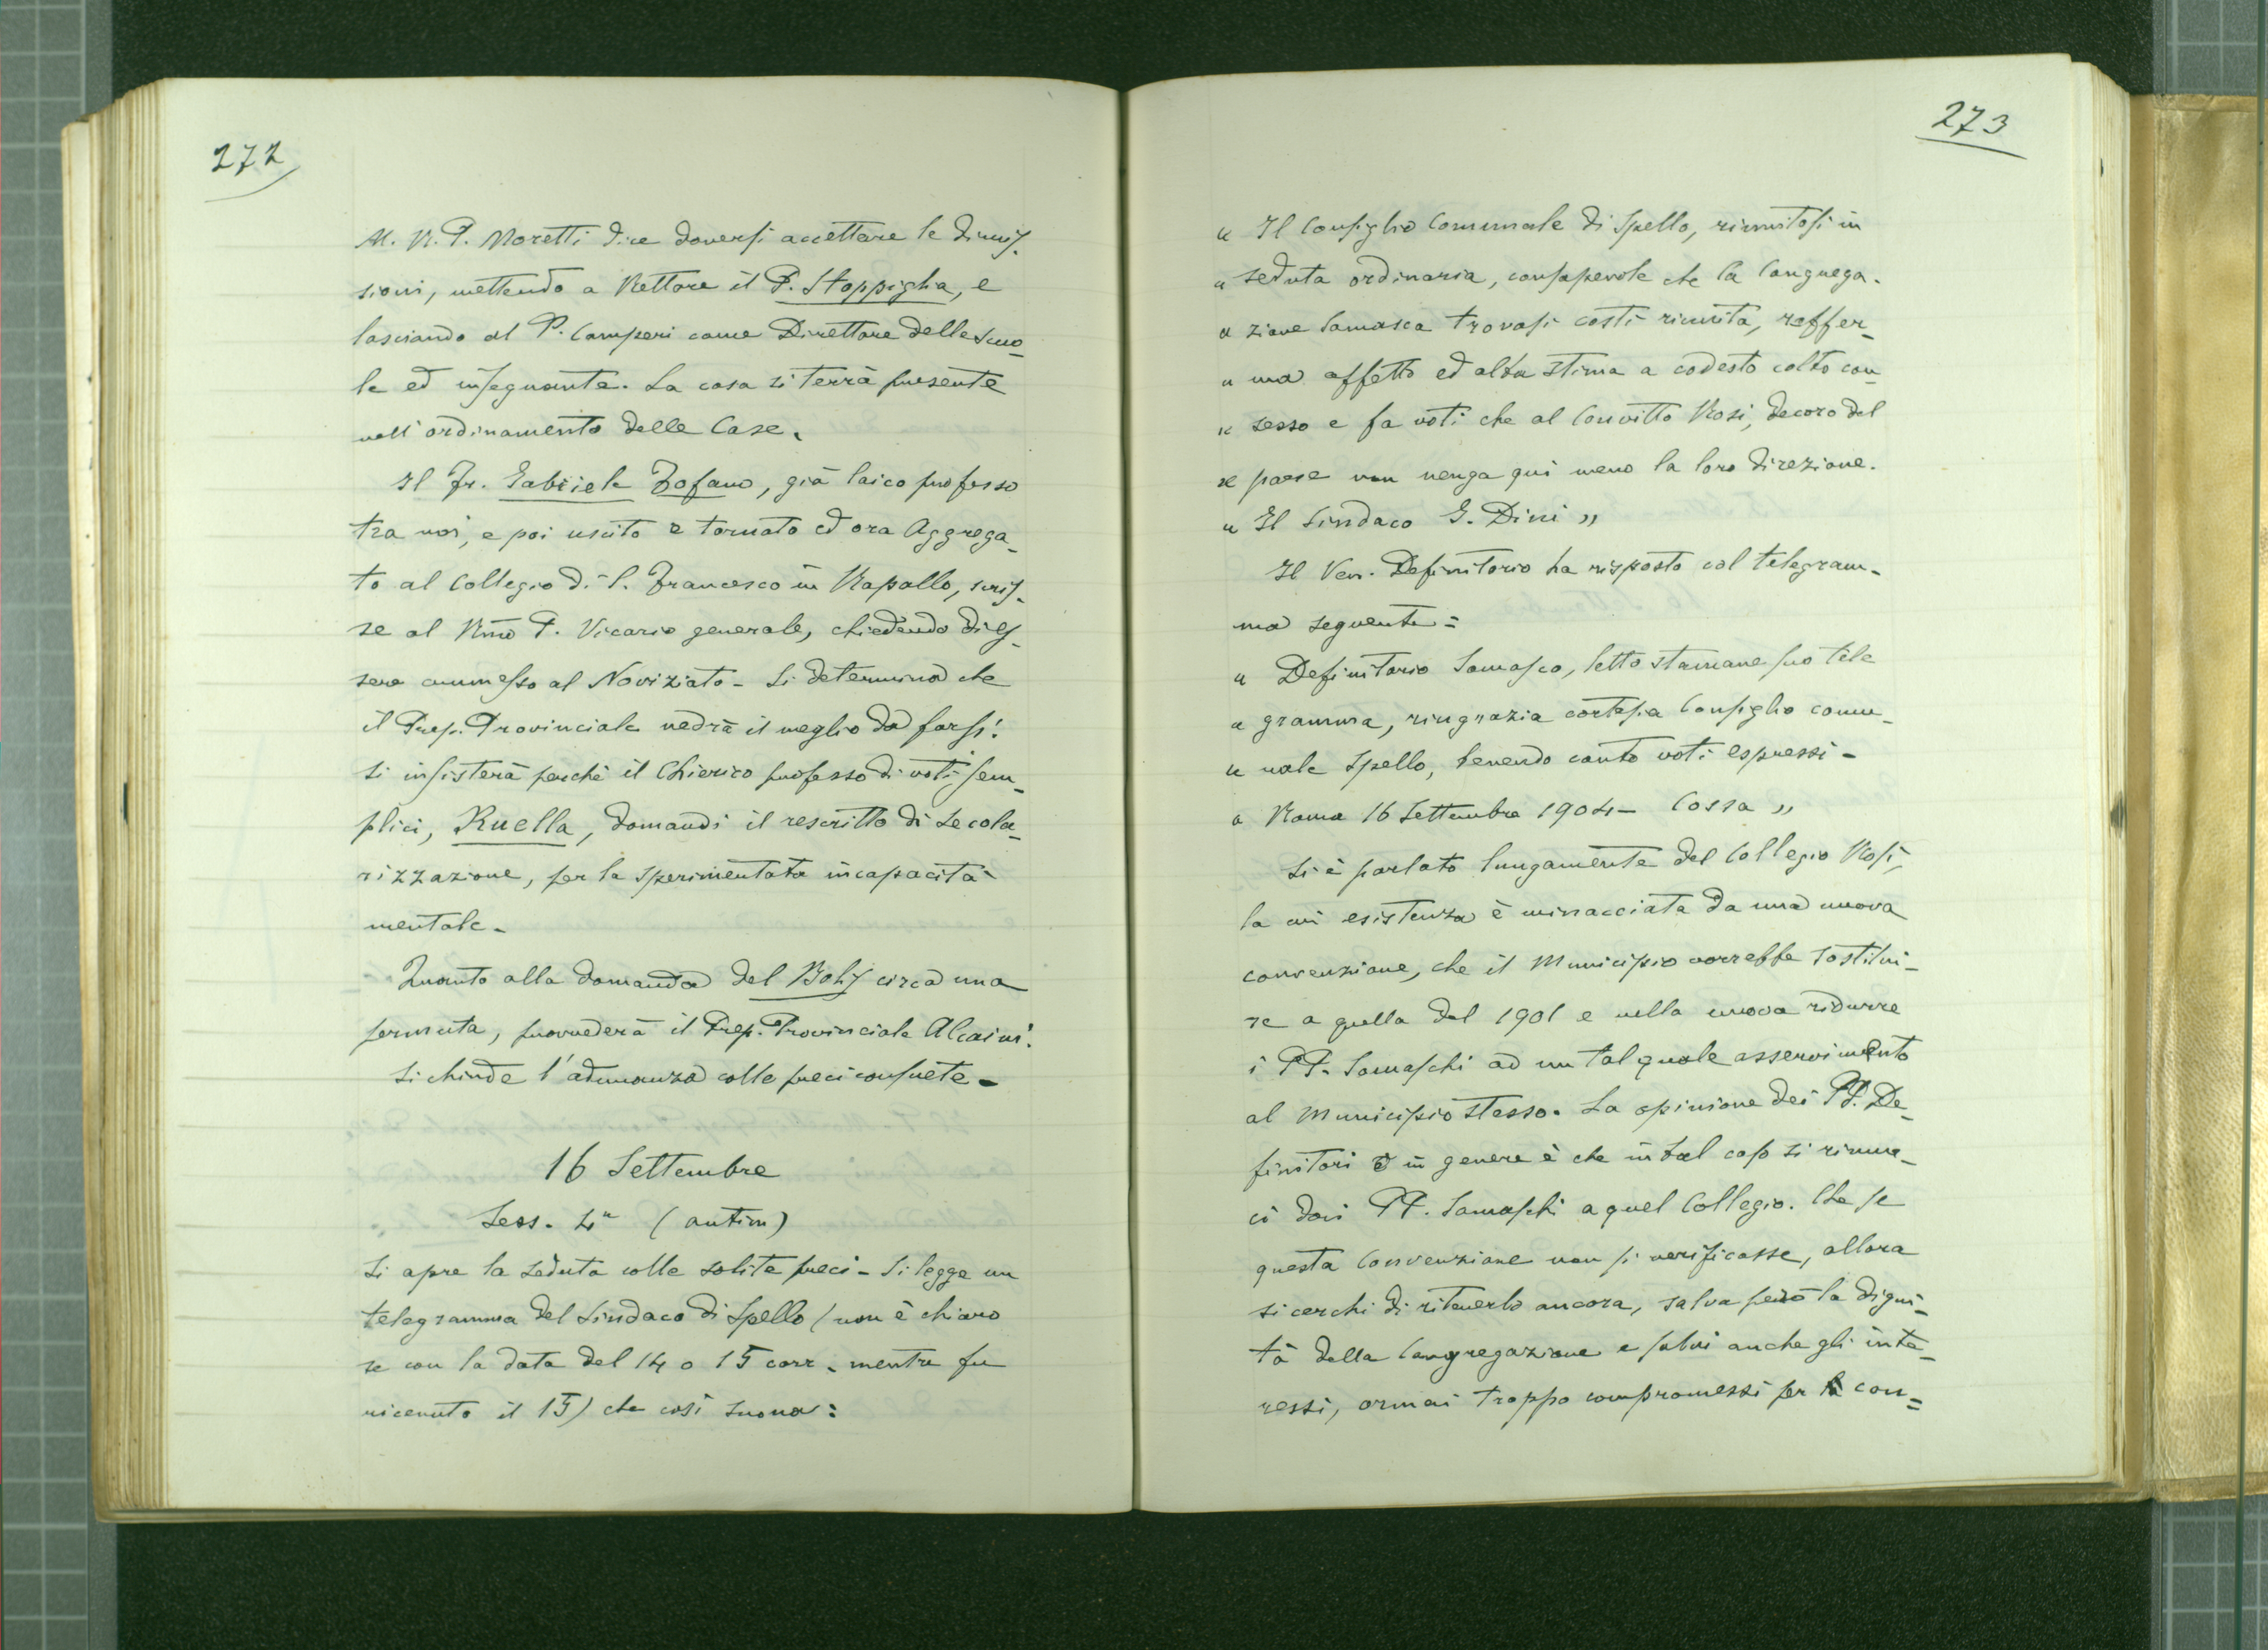 272
M. R. P. Moretti dice doversi accettare le dimis-
sioni, mettendo a Rettore il P. Stoppiglia, e
lasciando al P. Camperi come Direttore delle Scuo-
le ed insegnante. La cosa si terrà presente
nell'ordinamento delle Case.
Il Fr. Gabriele Zofano, già laico professo
tra noi, e poi uscito e tornato ed ora Aggrega-
to al Collegio di S. Francesco in Rapallo, scris-
se al Rmo P. Vicario generale, chiedendo di es-
sere ammesso al Noviziato - Si determina che
il Prep. Provinciale vedrà il meglio da farsi.
Si insisterà perchè il Chierico professo di voti sem-
plici, Ruella, domandi il rescritto di secola-
rizzazione, per la sperimentata incapacità
mentale.
Quanto alla domanda del Bolis circa una
permuta, provvederà il Prep. Provinciale Alcaini.
Si chiude l'adunanza colle preci consuete -
16 Settembre
Sess. 4a (antim)
Si apre la seduta colle solite preci - Si legge un
telegramma del Sindaco di Spello (non è chiaro
se con la data del 14 o 15 corr. mentre fu
ricevuto il 15) che così suona:
273
« Il Consiglio Comunale di Spello, riunitosi in
« seduta ordinaria, consapevole che la Congrega-
« zione Somasca trovasi costì riunita, raffer-
« ma affetto ed alta stima a codesto colto con-
« sesso e fa voti che al Convitto Rosi, decoro del
« paese non venga qui meno la loro direzione.
« Il Sindaco G. Dini »
Il Ven. Definitorio ha risposto col telegram-
ma seguente =
« Definitorio Somasco, letto stamane suo tele
« gramma, ringrazia cortesia Consiglio comu-
« nale Spello, tenendo conto voti espressi -
« Roma 16 Settembre 1904 - Cossa »
Si è parlato lungamente del Collegio Rosi,
la cui esistenza è minacciata da una nuova
convenzione, che il Municipio vorrebbe sostitui-
re a quella del 1901 e nella nuova ridurre
i PP. Somaschi ad un tal quale asservimento
al Municipio stesso. La opinione dei PP. De-
finitori in genere è che in tal caso si rinun-
ci dai PP. Somaschi a quel Collegio. Che se
questa Convenzione non si verificasse, allora
si cerchi di ritenerlo ancora, salva però la digni-
tà della Congregazione e salvi anche gli inte-
ressi, ormai troppo compromessi per la con=